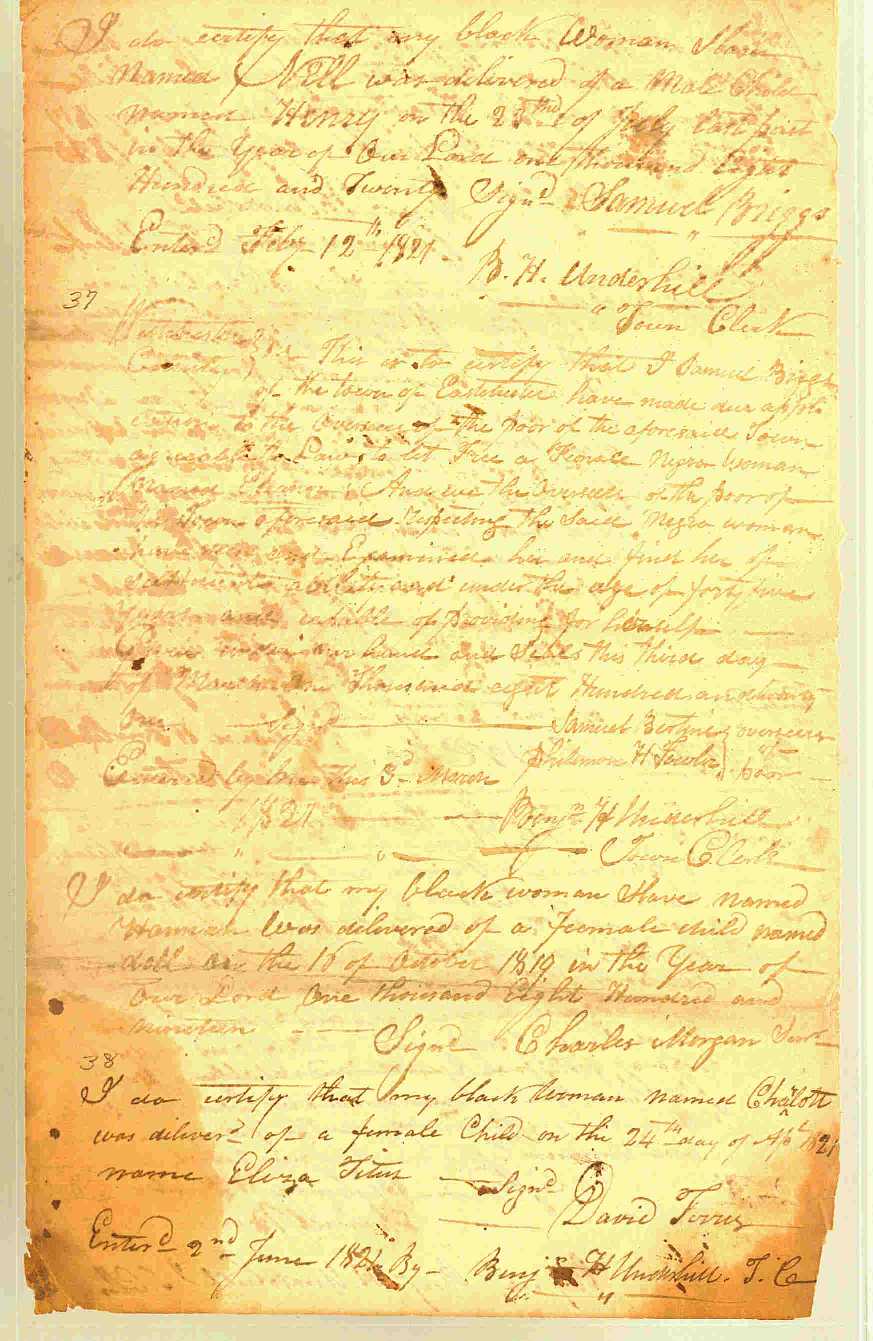 I do certify that my black Woman Slave
Named Nell was delivered of a Male Child
named Henry on the 2 of July last past
in the Year of Our Lord one thousand Eight
Hundred and Twenty Signd Samuel Briggs
Enterd Feby 12th 1821
B. H. Underhill
Town Clerk
37
Westchester
County This is to certify that I Samuel Briggs
of the town of Eastchester have made due appli
cation to the Overseers of the poor of the aforesaid Town
agreeable to Law to let Free a Female Negro Woman
Named And we the Overseers of the poor of
the Town aforesaid respecting the said Negro woman
have seen and Examined her and find her of
sufficient ability and under the age of forty five
years and capable of providing for herself
Given under our hand and Seals this third day
of March One Thousand eight Hundred and twenty
One Signed Samuel Bertine overseers
of
Philemon H Fowler poor
Entered by me this 3d March
1821 Benjn H Underhill
Town Clerk
I do certify that my black woman Slave named
Hannah Was delivered of a Feemale child named
doll on the 16 of October 1819 in the Year of
Our Lord One thousand Eight Hundred and
nineteen
Signd Charles Morgan
38
I do certify that my black Woman named Chalott
was deliverd of a female Child on the 24th day of Apl 1821
name Eliza Titus
Signd
David
Enterd 2nd June 1821 By Benj H Underhill. T. C